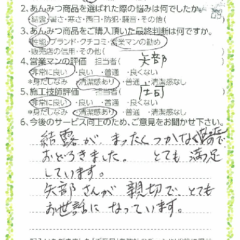 2.あんみつ商品を選ばれた際の悩みは何でしたか。
結露・暑さ・寒さ・西日・防犯・騒音・その他(
3.あんみつ商品をご購入頂いた最終判断は何ですか。
性能・ブランド・クチコミ・営業マンの勧め・
販売店の信用・その他(
4.営業マンの評価 担当者( 矢部 )
非常に良い・良い・普通・良くない
※身だしなみ 清潔感あり・普通・清潔感なし
5.施工技術評価 担当者(
非常に良い・良い・普通・良くない
※身だしなみ 清潔感あり・普通・清潔感なし
6.今後のサービス向上のため、ご意見をお聞かせ下さい
結露が、まったくつかなく
おどろきました。とても満足
しています。
矢部さんが親切で、とても
お世話になっています。